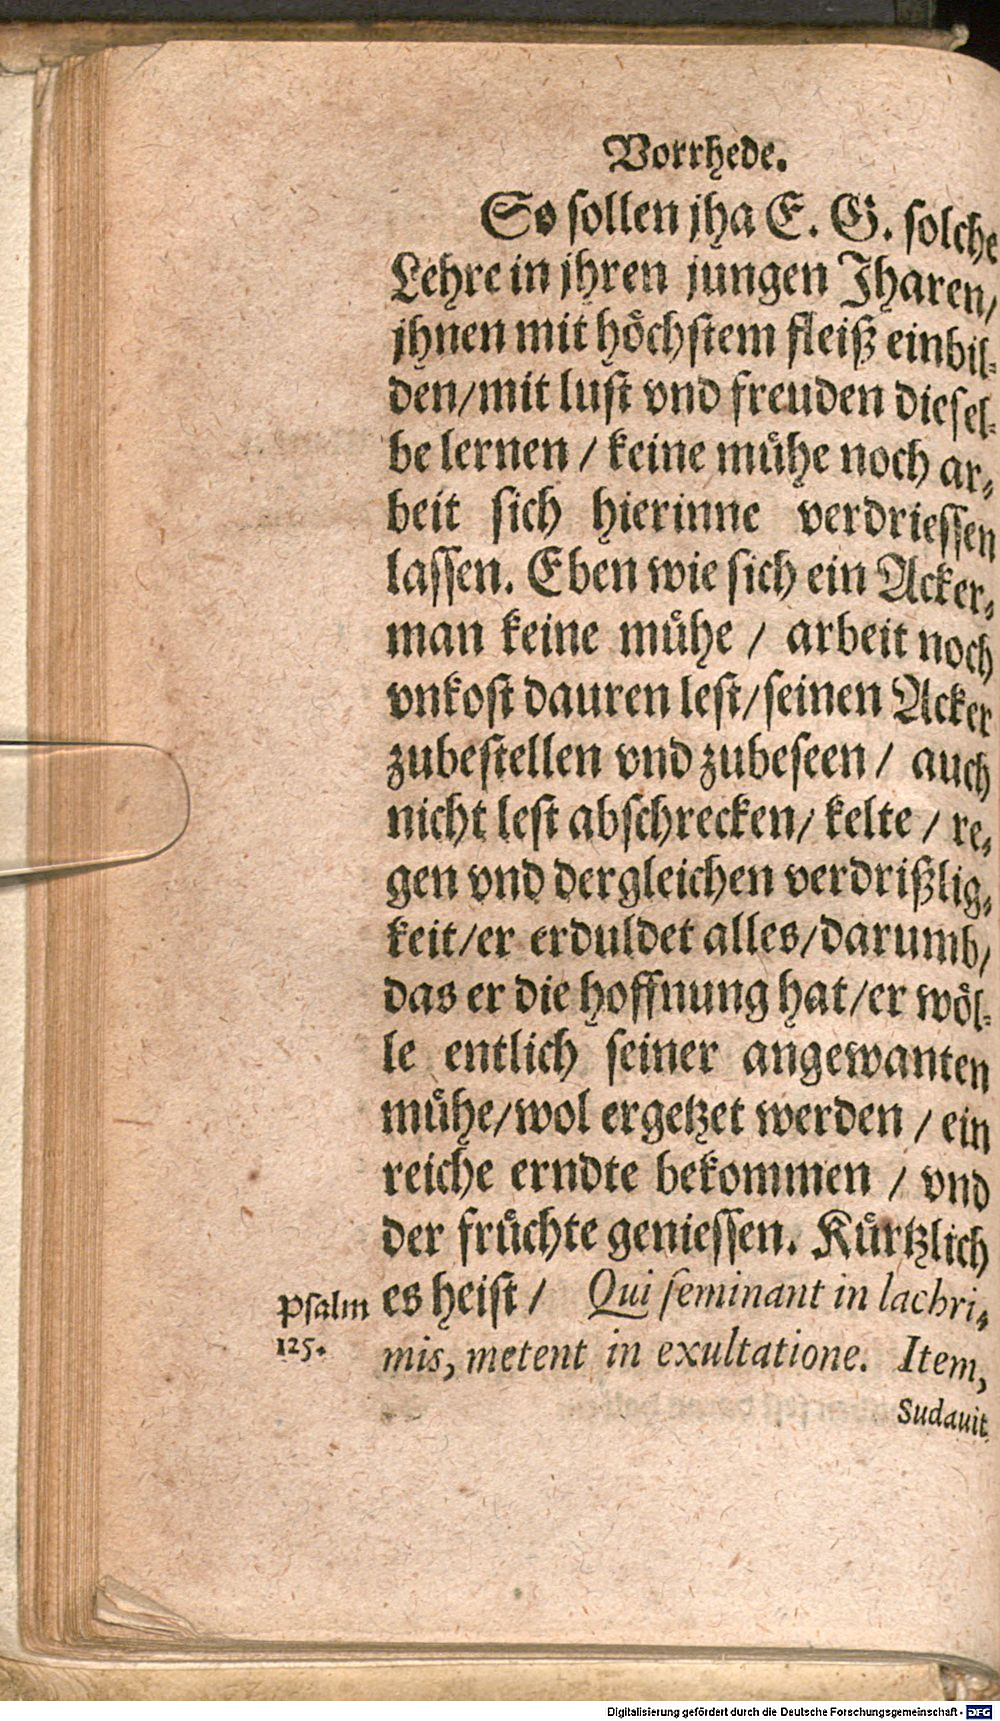 Vorrhede.
So sollen jha E. G. solche
Lehre in jhren jungen Jharen/
jhnen mit hoͤchstem fleiß einbil-
den/mit lust vnd freuden diesel-
be lernen / keine muͤhe noch ar-
beit sich hierinne verdriessen
lassen. Eben wie sich ein Acker-
man keine muͤhe / arbeit noch
vnkost dauren lest/seinen Acker
zubestellen vnd zubeseen / auch
nicht lest abschrecken/ kelte / re-
gen vnd dergleichen verdrißlig-
keit/er erduldet alles/darumb/
das er die hoffnung hat/er woͤl-
le entlich seiner angewanten
muͤhe/wol ergetzet werden / ein
reiche erndte bekommen / vnd
der fruͤchte geniessen. Kuͤrtzlich
Psalm 125.
es heist / Qui seminant in lachri-
mis, metent in exultatione. Item,
Sudauit
Digitalisierung gefördert durch die Deutsche Forschungsgemeinschaft - DFG